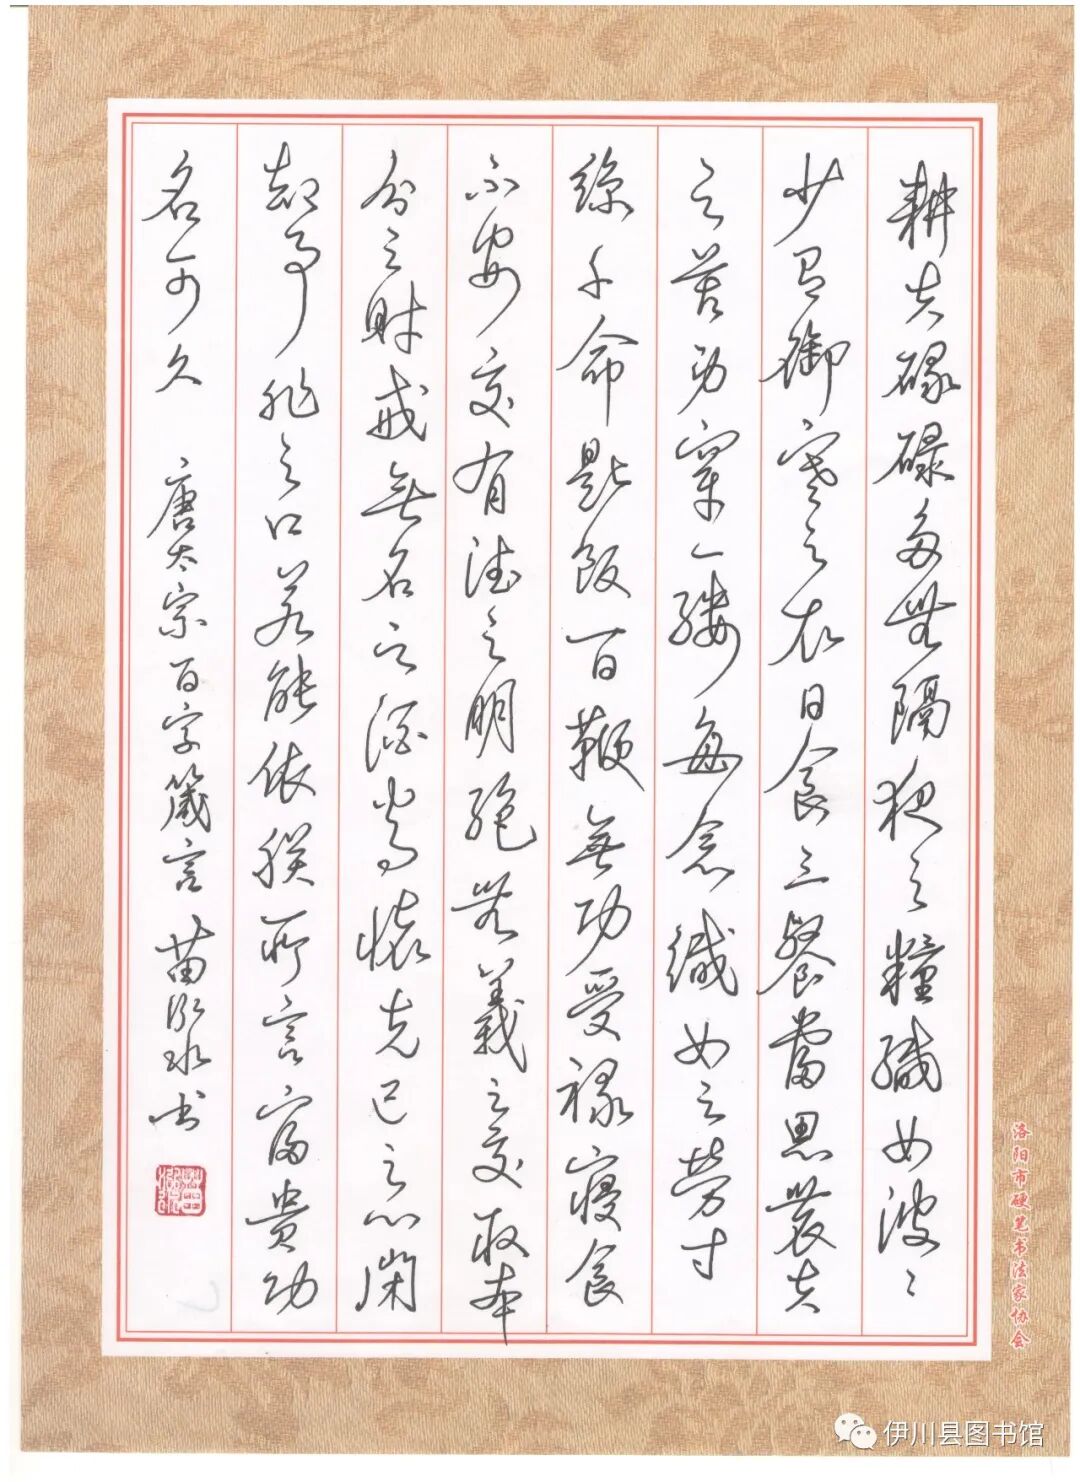 耕夫碌碌多無隔夜之糧織女波〻
少有御寒之衣日食三餐當思農夫
之苦身穿一縷每念織女之勞寸
絲千命匙飯百鞭無功受禄寝食
不安交有德之朋絕無義之交取本
分之財戒無名之酒常懷克己之心閑
却事非之口若能依朕所言富貴功
名可久 唐太宗百字箴言 苗水书
洛阳市硬笔书法家协会
伊川县图书馆